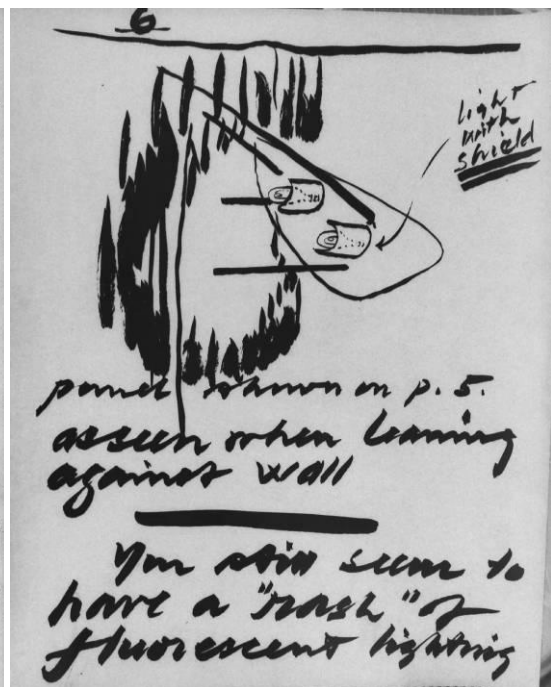 6
light
with
shield
panel shown on p. 5.
as seen when leaning
against wall
You still seem to
have a "rash" of
fluorescent lighting